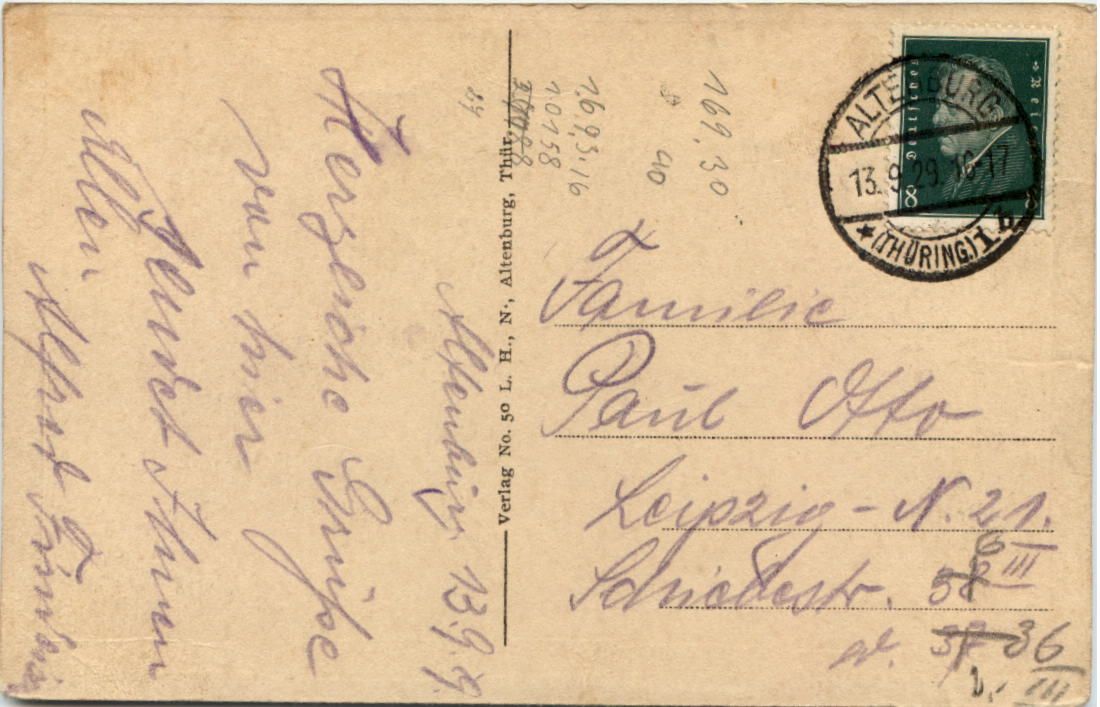 Altenburg, 13.9.29.
Herzliche Grüße
von hier
sendet Ihnen
Allen
Alfred
Verlag No. 50 L. H., N., Altenburg, Thür.
169,30
40
16.9,3.16
10158
84
Deutsches Reich
8 8
ALTENBURG
13.9.29.16-17
★(THÜRING.)1 b
Familie
Paul Otto
Leipzig - N. 21.
6
Schiedestr. 38 III
36
III